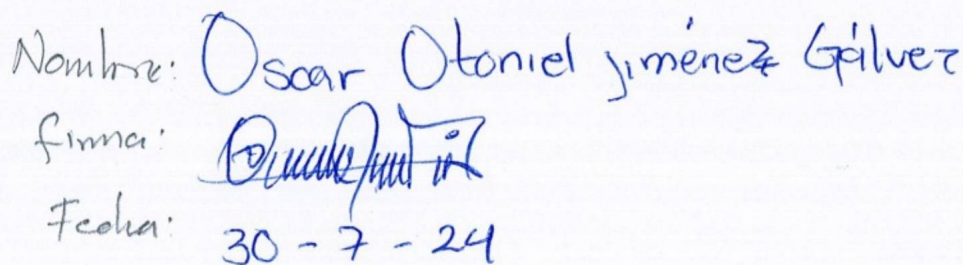 Nombre: Oscar Otoniel Jiménez Gálvez
firma:
Fecha: 30 - 7 - 24